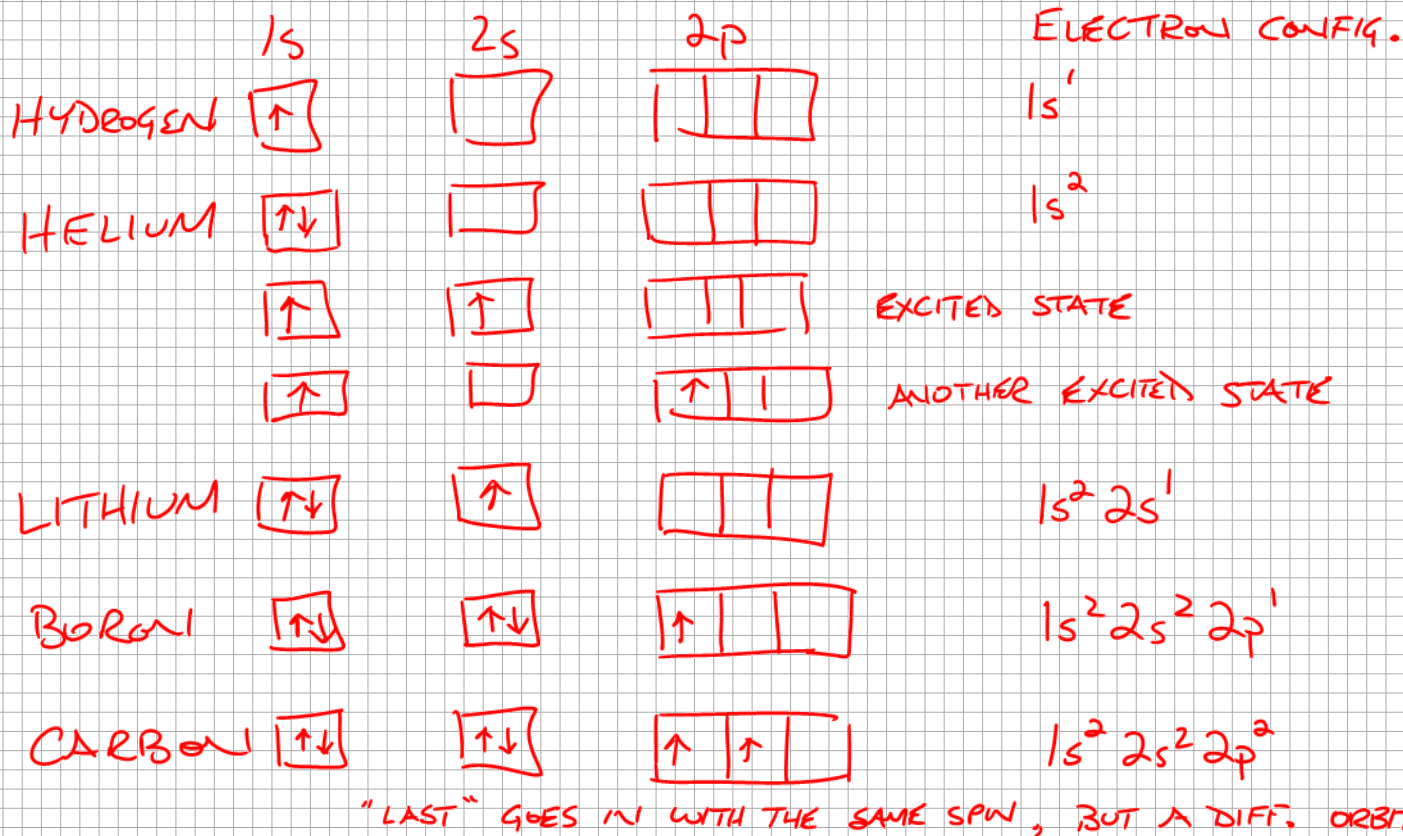 1s 2s 2p ELECTRON CONFIG.
HYDROGEN ↑ 1s¹
HELIUM ↑↓ 1s²
↑ ↑ EXCITED STATE
↑ ↑ ANOTHER EXCITED STATE
LITHIUM ↑↓ ↑ 1s² 2s¹
BORON ↑↓ ↑↓ ↑ 1s² 2s² 2p¹
CARBON ↑↓ ↑↓ ↑ ↑ 1s² 2s² 2p²
"LAST" GOES IN WITH THE SAME SPIN, BUT A DIFF.